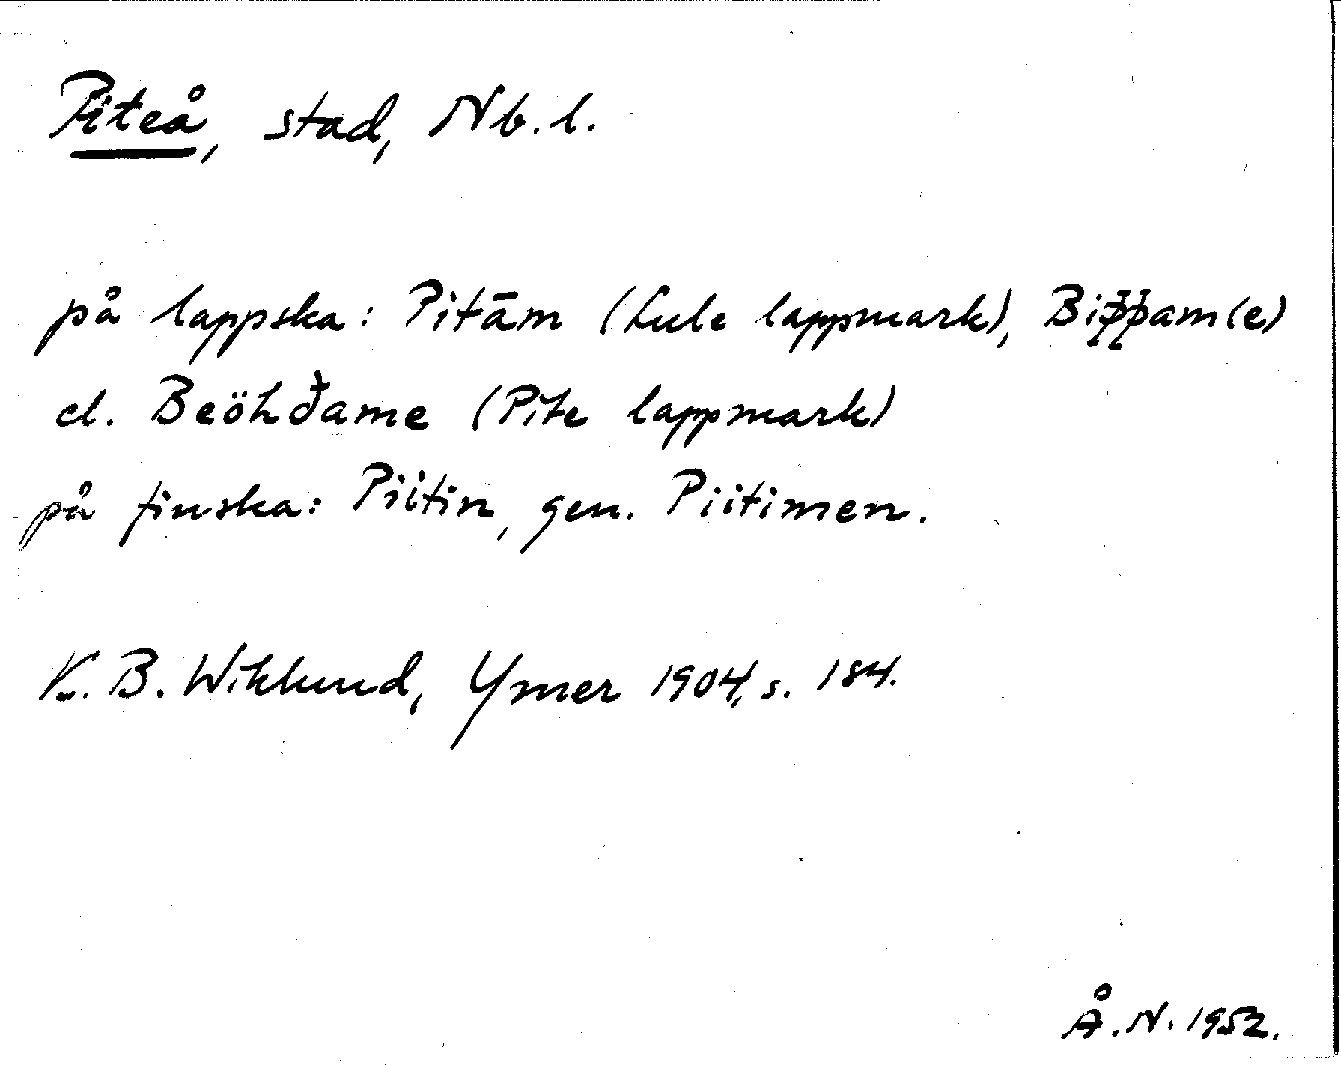 Piteå, stad, Nb.l.
på lappska: Pitām (Lule lappmark), Biþþam(e)
el. Beöhđame (Pite lappmark)
på finska: Piitin, gen. Piitimen.
K. B. Wiklund, Ymer 1904, s. 184.
Å. N. 1952.